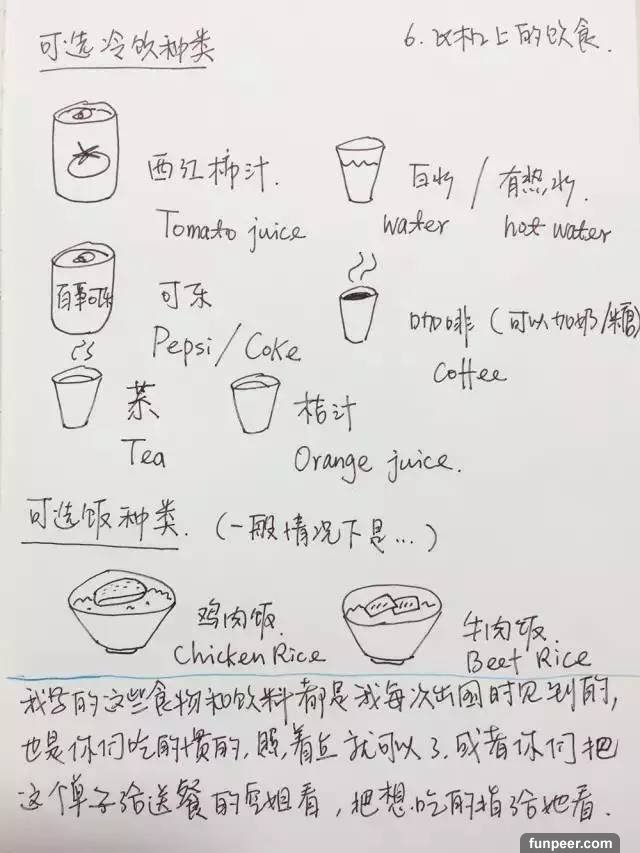 可选冷饮种类
6. 飞机上的饮食.
西红柿汁.
Tomato juice
白水 / 有热水.
water hot water
百事可乐
可乐
Pepsi/Coke
咖啡 (可以加奶/糖)
Coffee
茶
Tea
桔汁
Orange juice.
可选饭种类. (一般情况下是...)
鸡肉饭.
Chicken Rice
牛肉饭.
Beef Rice
我写的这些食物和饮料都是我每次出国时见到的,
也是你们吃的惯的, 照着点就可以了. 或者你们把
这个单子给送餐的空姐看, 把想吃的指给她看.
funpeer.com